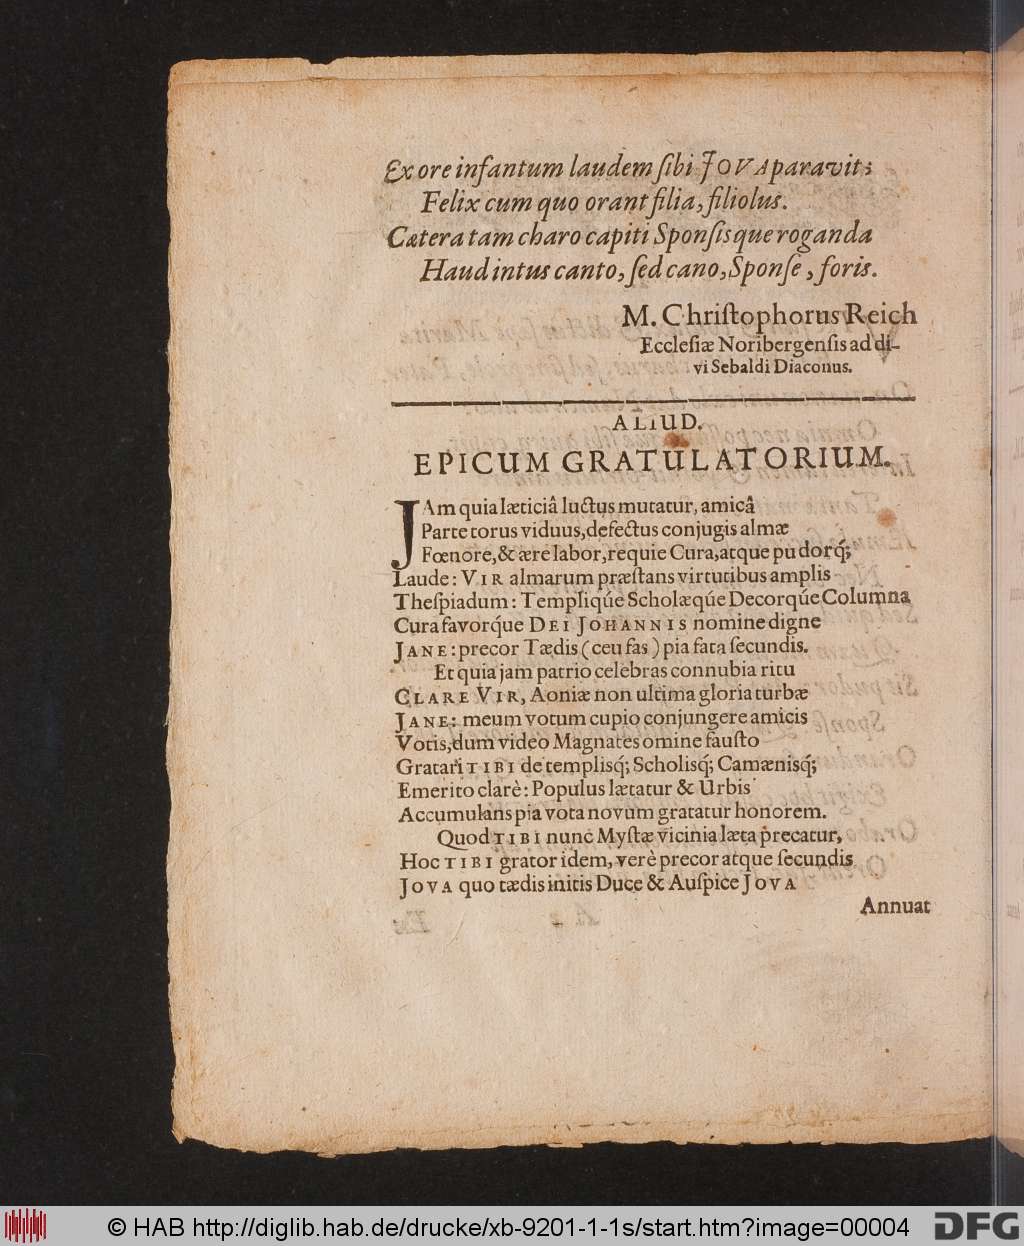 Ex ore infantum laudem ſibi JOVA paravit;
Felix cum quo orant filia, filiolus.
Cætera tam charo capiti Sponſisque roganda
Haud intus canto, ſed cano, Sponſe, foris.
M. Chriſtophorus Reich
Eccleſiæ Noribergenſis ad di-
vi Sebaldi Diaconus.
ALIUD.
EPICUM GRATULATORIUM.
JAm quia læticiâ luctus mutatur, amicâ
Parte torus viduus, defectus conjugis almæ
Fœnore, & ære labor, requie Cura, atque pudorq́;
Laude: VIR almarum præſtans virtutibus amplis
Theſpiadum: Templiq́ue Scholæq́ue Decorq́ue Columna
Cura favorq́ue DEI JOHANNIS nomine digne
JANE: precor Tædis (ceu fas) pia fata ſecundis.
Et quia jam patrio celebras connubia ritu
CLARE VIR, Aoniæ non ultima gloria turbæ
JANE: meum votum cupio conjungere amicis
Votis, dum video Magnates omine fauſto
Gratari TIBI de templisq́; Scholisq́; Camænisq́;
Emerito clarè: Populus lætatur & Urbis
Accumulans pia vota novum gratatur honorem.
Quod TIBI nunc Myſtæ vicinia læta precatur,
Hoc TIBI grator idem, verè precor atque ſecundis
JOVA quo tædis initis Duce & Auſpice JOVA
Annuat
© HAB http://diglib.hab.de/drucke/xb-9201-1-1s/start.htm?image=00004
DFG